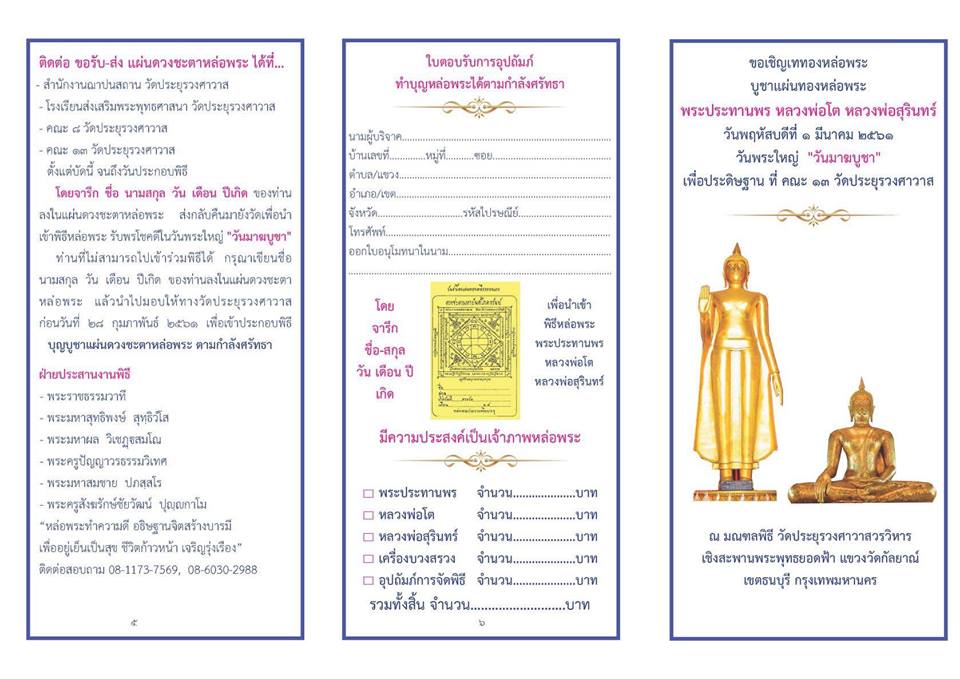 ติดต่อ ขอรับ-ส่ง แผ่นดวงชะตาหล่อพระ ได้ที่...
- สำนักงานฌาปนสถาน วัดประยุรวงศาวาส
- โรงเรียนส่งเสริมพระพุทธศาสนา วัดประยุรวงศาวาส
- คณะ ๘ วัดประยุรวงศาวาส
- คณะ ๑๓ วัดประยุรวงศาวาส
ตั้งแต่บัดนี้ จนถึงวันประกอบพิธี
โดยจารึก ชื่อ นามสกุล วัน เดือน ปีเกิด ของท่าน
ลงในแผ่นดวงชะตาหล่อพระ ส่งกลับคืนมายังวัดเพื่อนำ
เข้าพิธีหล่อพระ รับพรโชคดีในวันพระใหญ่ "วันมาฆบูชา"
ท่านที่ไม่สามารถไปเข้าร่วมพิธีได้ กรุณาเขียนชื่อ
นามสกุล วัน เดือน ปีเกิด ของท่านลงในแผ่นดวงชะตา
หล่อพระ แล้วนำไปมอบให้ทางวัดประยุรวงศาวาส
ก่อนวันที่ ๒๘ กุมภาพันธ์ ๒๕๖๑ เพื่อเข้าประกอบพิธี
บุญบูชาแผ่นดวงชะตาหล่อพระ ตามกำลังศรัทธา
ฝ่ายประสานงานพิธี
- พระราชธรรมวาที
- พระมหาสุทธิพงษ์ สุทฺธิวํโส
- พระมหาผล วิเชฏฺฐสมโณ
- พระครูปัญญาวรธรรมวิเทศ
- พระมหาสมชาย ปภสฺสโร
- พระครูสังฆรักษ์ชัยวัฒน์ ปุญฺญกาโม
“หล่อพระทำความดี อธิษฐานจิตสร้างบารมี
เพื่ออยู่เย็นเป็นสุข ชีวิตก้าวหน้า เจริญรุ่งเรือง”
ติดต่อสอบถาม 08-1173-7569, 08-6030-2988
๕
ใบตอบรับการอุปถัมภ์
ทำบุญหล่อพระได้ตามกำลังศรัทธา
นามผู้บริจาค.............................................
บ้านเลขที่............หมู่ที่.........ซอย.....................
ตำบล/แขวง.............................................
อำเภอ/เขต..............................................
จังหวัด............................รหัสไปรษณีย์.....................
โทรศัพท์................................................
ออกใบอนุโมทนาในนาม...................................
.............................................................
โดย
จารึก
ชื่อ-สกุล
วัน เดือน ปี
เกิด
เพื่อนำเข้า
พิธีหล่อพระ
พระประทานพร
หลวงพ่อโต
หลวงพ่อสุรินทร์
มีความประสงค์เป็นเจ้าภาพหล่อพระ
พระประทานพร จำนวน.....................บาท
หลวงพ่อโต จำนวน.....................บาท
หลวงพ่อสุรินทร์ จำนวน.....................บาท
เครื่องบวงสรวง จำนวน.....................บาท
อุปถัมภ์การจัดพิธี จำนวน.....................บาท
รวมทั้งสิ้น จำนวน...........................บาท
๖
ขอเชิญเททองหล่อพระ
บูชาแผ่นทองหล่อพระ
พระประทานพร หลวงพ่อโต หลวงพ่อสุรินทร์
วันพฤหัสบดีที่ ๑ มีนาคม ๒๕๖๑
วันพระใหญ่ "วันมาฆบูชา"
เพื่อประดิษฐาน ที่ คณะ ๑๓ วัดประยุรวงศาวาส
ณ มณฑลพิธี วัดประยุรวงศาวาสวรวิหาร
เชิงสะพานพระพุทธยอดฟ้า แขวงวัดกัลยาณ์
เขตธนบุรี กรุงเทพมหานคร